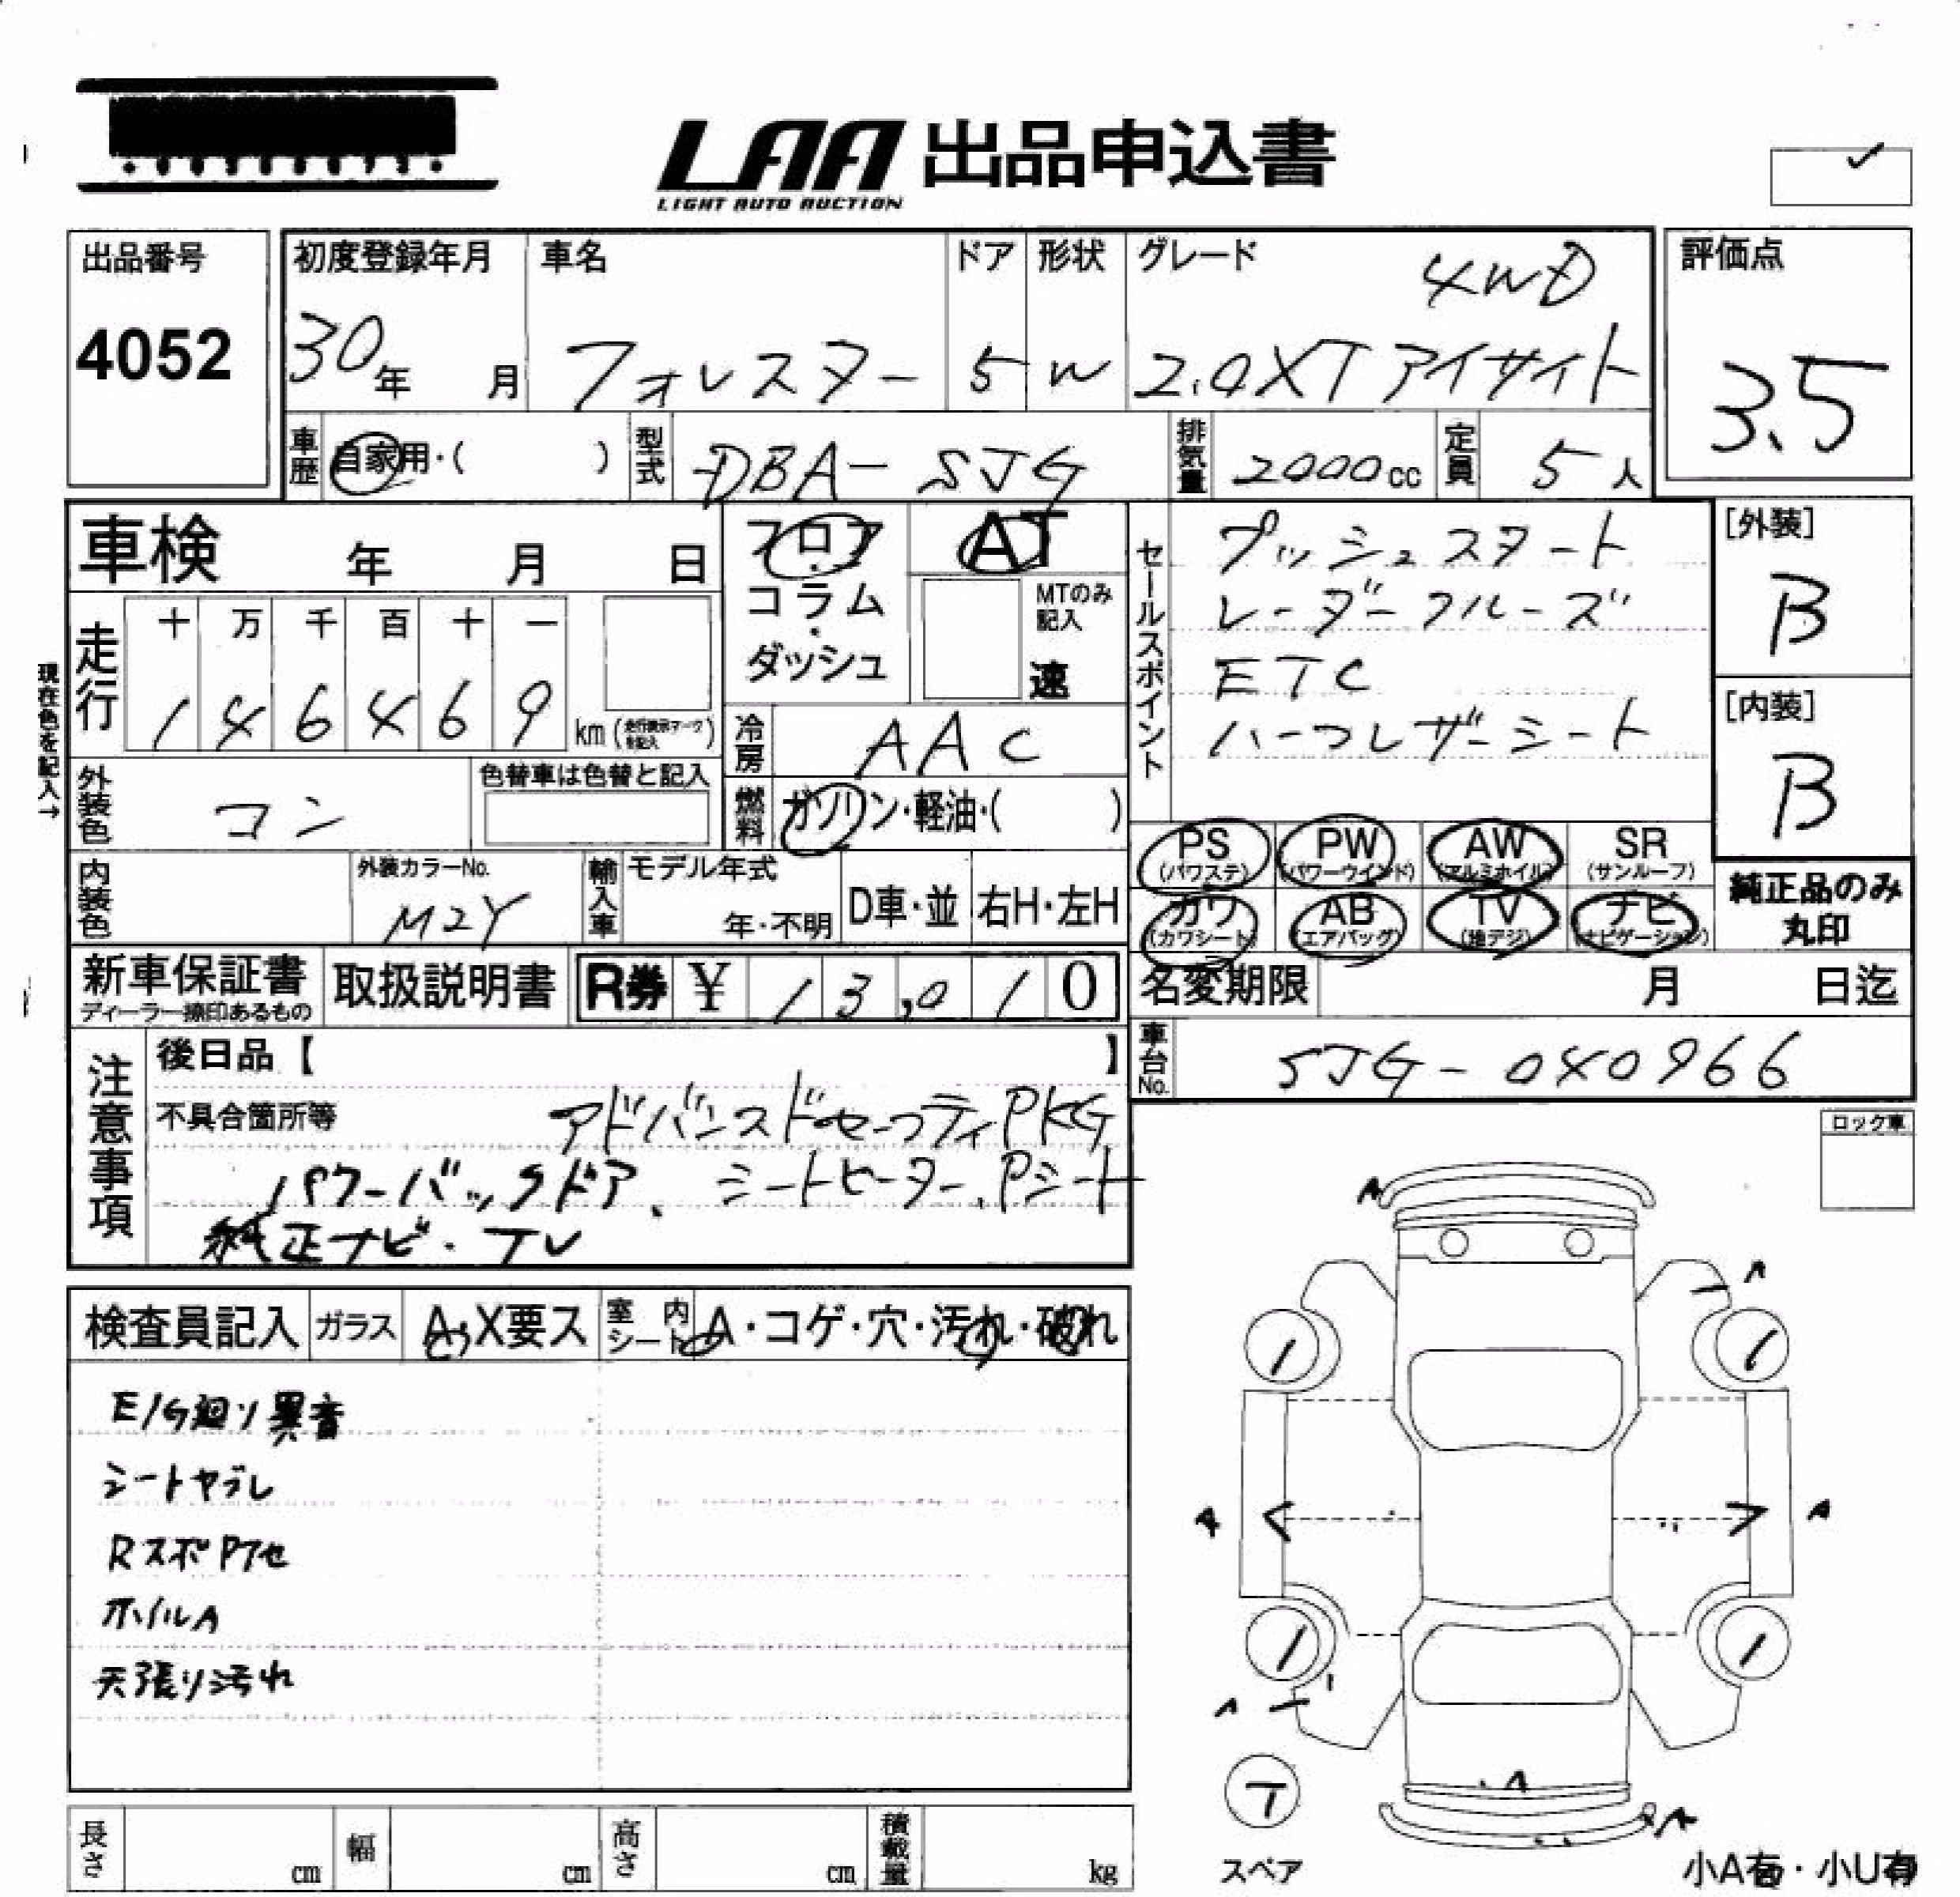 LAA 出品申込書
LIGHT AUTO AUCTION
出品番号
4052
初度登録年月
30年 月
車名
フォレスター
ドア
5
形状
W
グレード
4WD
2.0XTアイサイト
評価点
3.5
車歴
自家用・( )
型式
DBA-SJG
排気量
2000cc
定員
5人
車検 年 月 日
フロア・コラム・ダッシュ
AT
MTのみ記入
速
セールスポイント
プッシュスタート
レーダークルーズ
ETC
ハーフレザーシート
[外装]
B
[内装]
B
現在色を記入→
走行
十 万 千 百 十 一
1 4 6 4 6 9
km (走行表示マークを記入)
冷房
AAC
外装色
コン
色替車は色替と記入
燃料
ガソリン・軽油・( )
PS (パワステ)
PW (パワーウインド)
AW (アルミホイル)
SR (サンルーフ)
カワ (カワシート)
AB (エアバッグ)
TV (地デジ)
ナビ (ナビゲーション)
純正品のみ丸印
内装色
外装カラーNo.
M2Y
輸入車
モデル年式
年・不明
D車・並
右H・左H
新車保証書
ディーラー捺印あるもの
取扱説明書
R券 ¥ 13,010
名変期限 月 日迄
車台No.
SJG-040966
注意事項
後日品【 】
不具合箇所等
アドバンスドセーフティPKG
パワーバックドア、シートヒーター、Pシート
純正ナビ・TV
ロック車
検査員記入
ガラス
A・X要ス
室内シート
A・コゲ・穴・汚れ・破れ
E/G廻り異音
シートヤブレ
RスポPアセ
ホイルA
天張り汚れ
A
A
A
A
A
A
A
T
スペア
小A有・小U有
長さ cm
幅 cm
高さ cm
積載量 kg